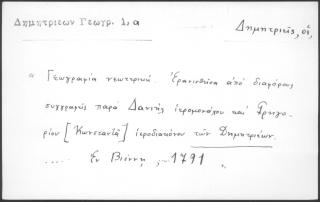 Δημητριεων Γεωγρ. 1,α
Δημητριεῖς, οἱ,
" Γεωγραφία νεωτερική. Ἐρανισθεῖσα ἀπό διαφόρους
συγγραφεῖς παρά Δανιήλ ἱερομονάχου καί Γρηγο-
ρίου [Κωνσταντᾶ] ἱεροδιακόνου τῶν Δημητριέων.
..... Ἐν Βιέννῃ, ... 1791 "